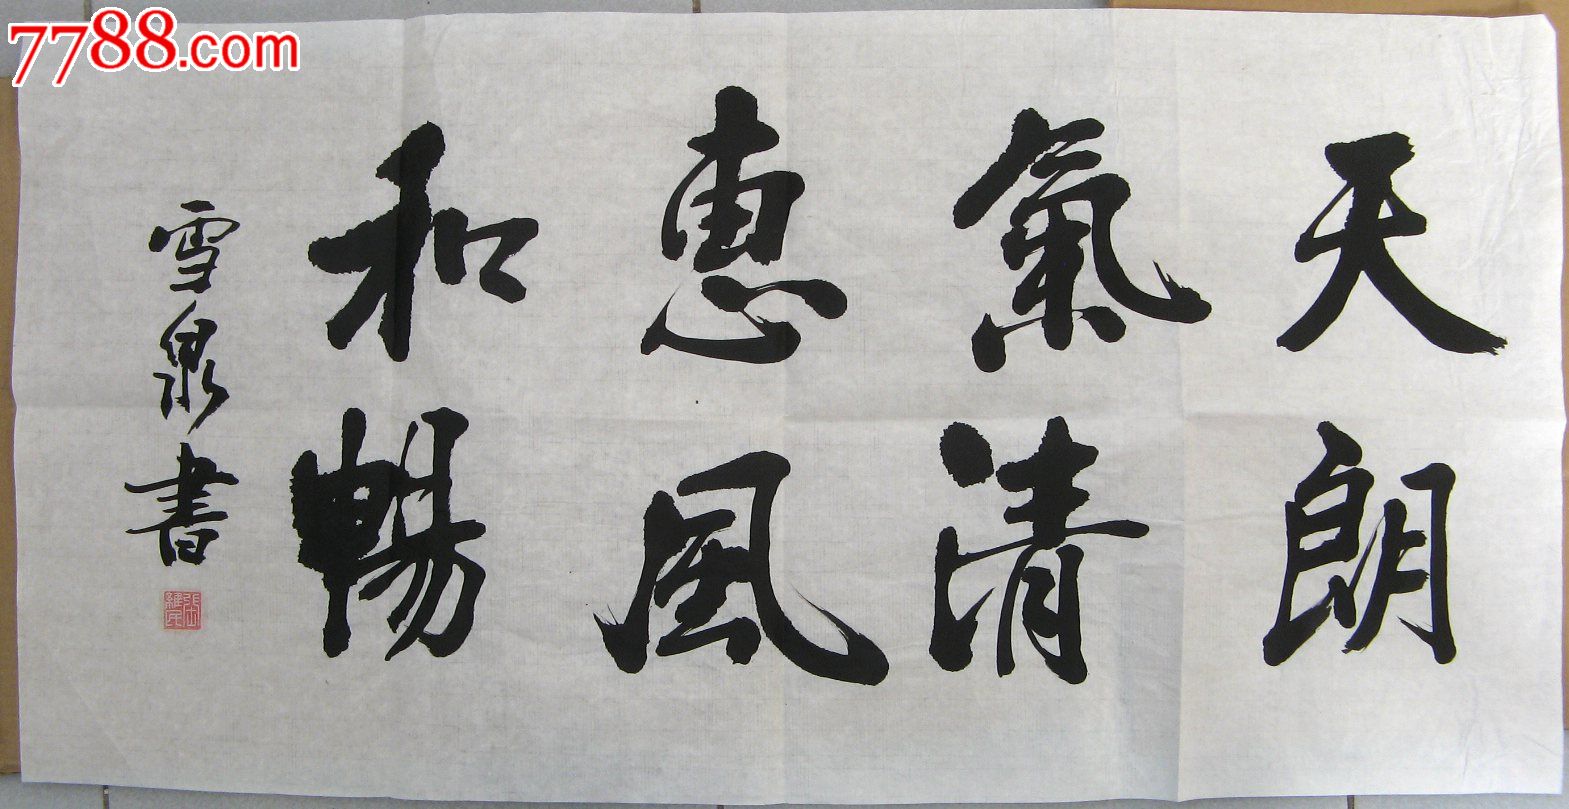 7788.com
天朗
氣清
惠風
和暢
雪泉書